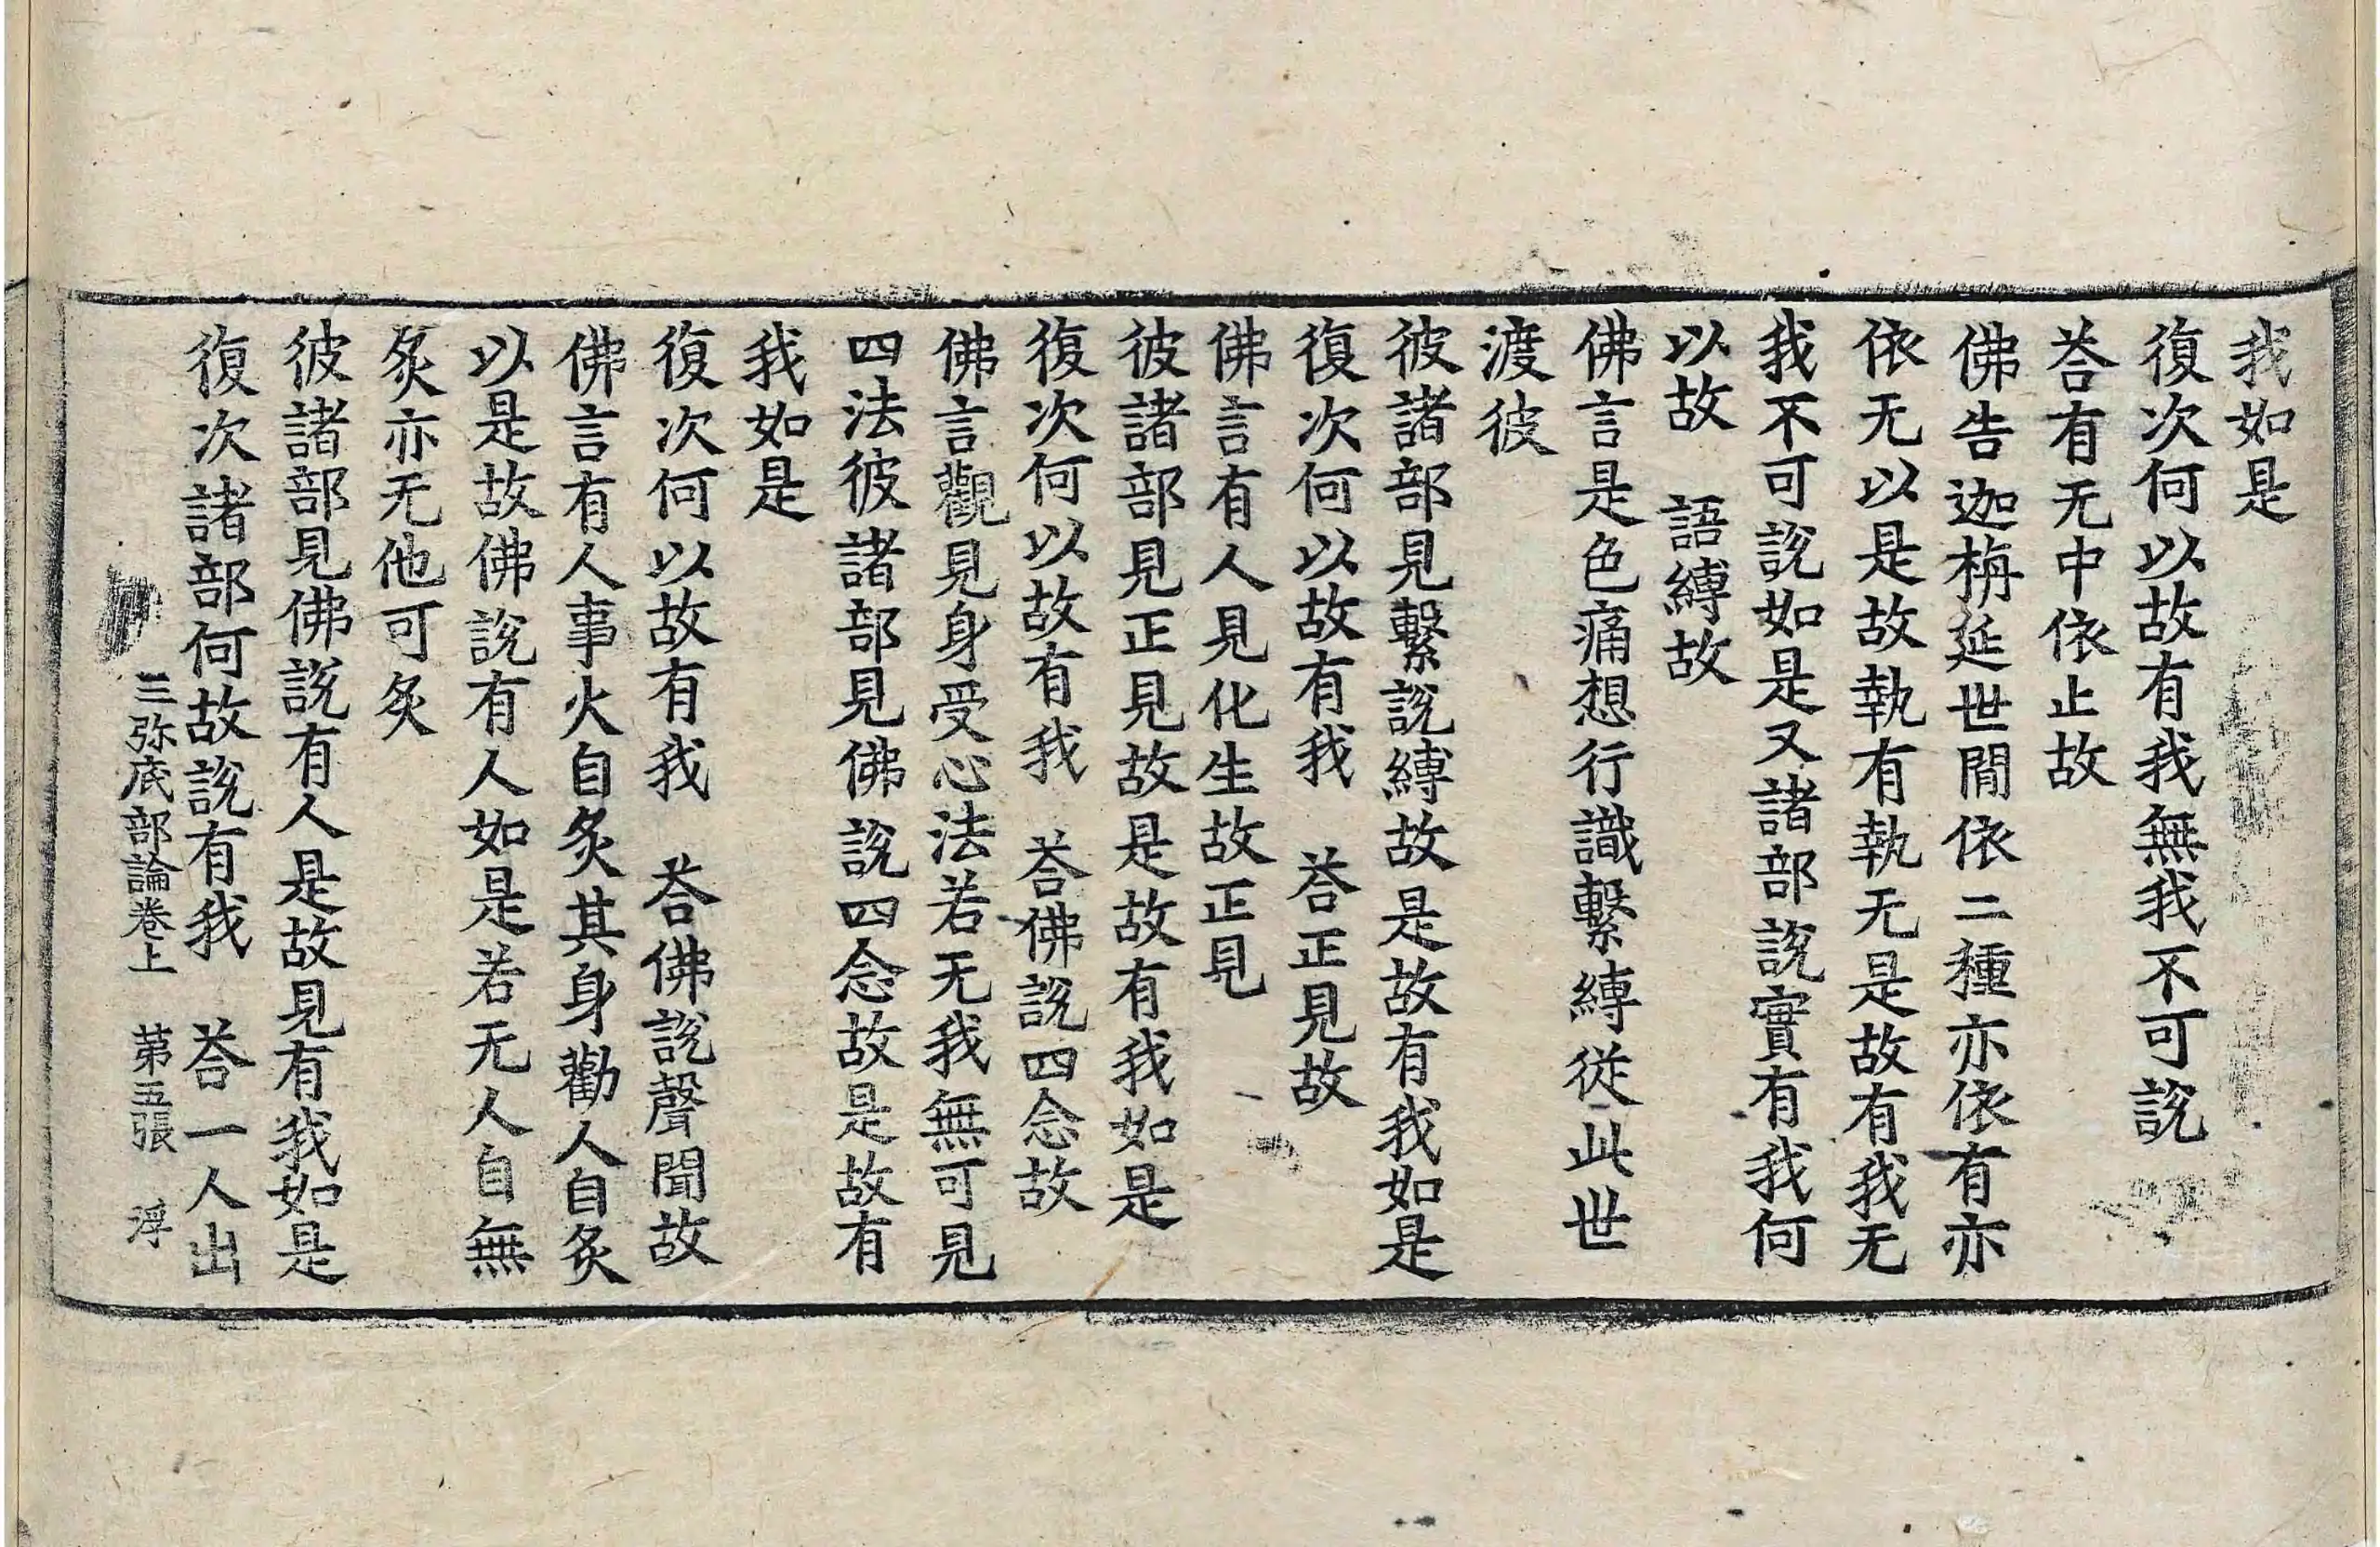 我如是
復次何以故有我無我不可說
荅有无中依止故
佛告迦栴延世閒依二種亦依有亦
依无以是故執有執无是故有我无
我不可說如是又諸部說實有我何
以故　語縛故
佛言是色痛想行識繫縛從此世
渡彼
彼諸部見繫說縛故是故有我如是
復次何以故有我　荅正見故
佛言有人見化生故正見
彼諸部見正見故是故有我如是
復次何以故有我　荅佛說四念故
佛言觀見身受心法若无我無可見
四法彼諸部見佛說四念故是故有
我如是
復次何以故有我　荅佛說聲聞故
佛言有人事火自炙其身勸人自炙
以是故佛說有人如是若无人自無
炙亦无他可炙
彼諸部見佛說有人是故見有我如是
復次諸部何故說有我　荅一人出
三弥底部論卷上　苐五張　浮